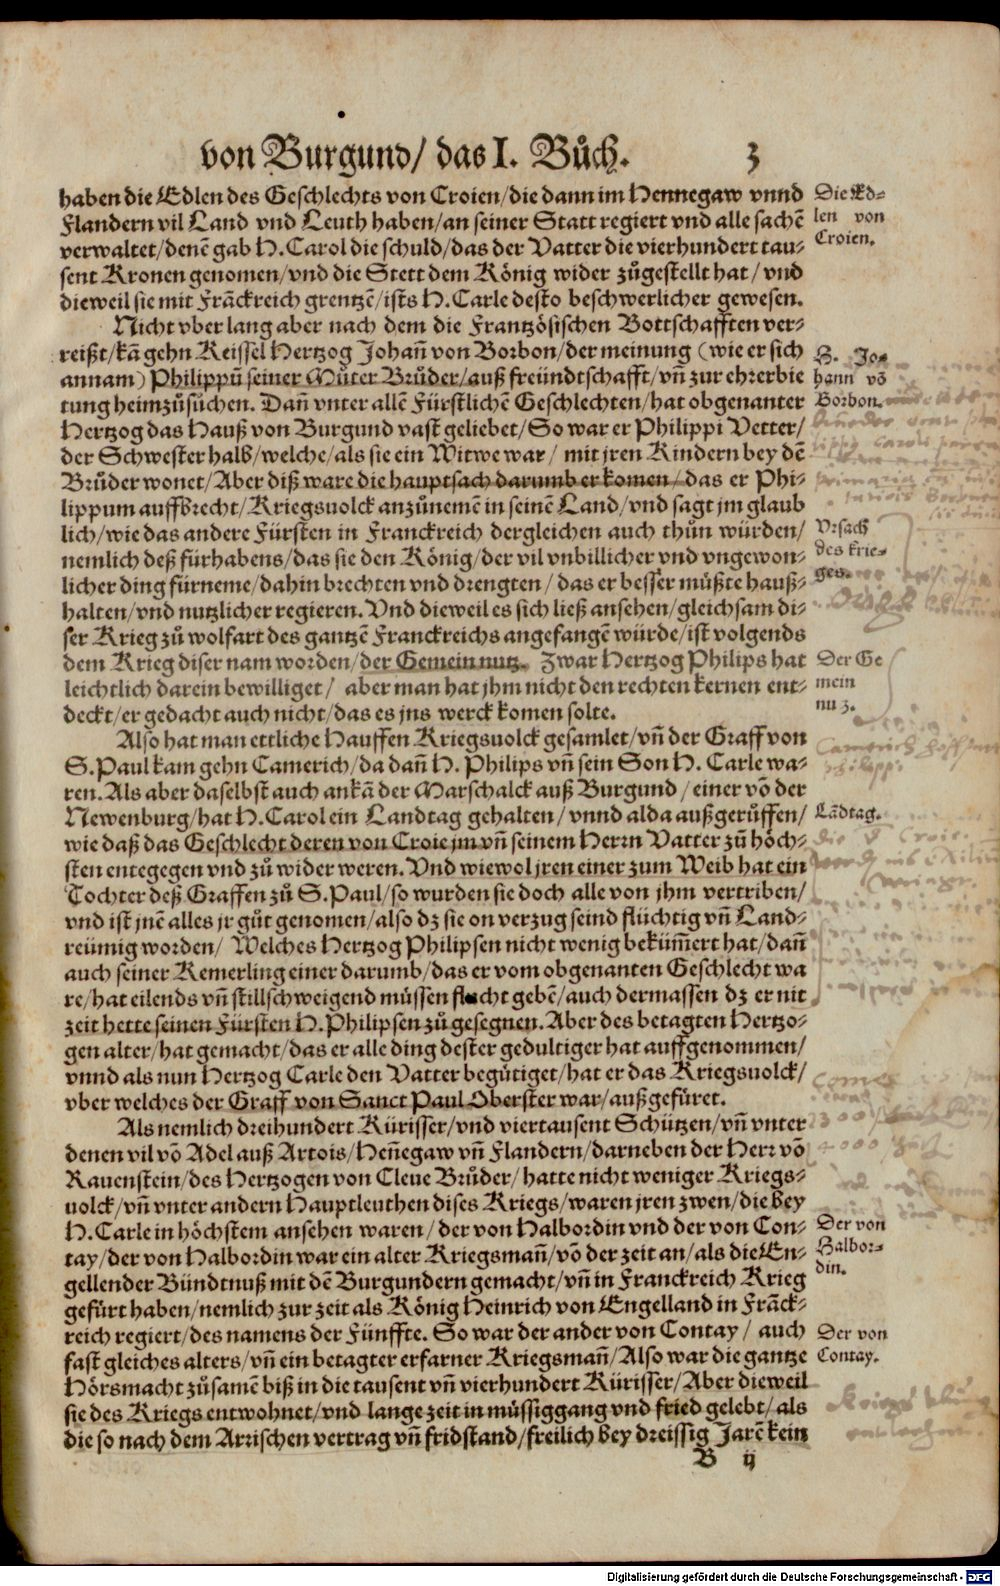 von Burgund/ das I. Bůch. 3
haben die Edlen des Geschlechts von Croien/die dann im Hennegaw vnnd
Flandern vil Land vnd Leuth haben/an seiner Statt regiert vnd alle sachē
verwaltet/denē gab H. Carol die schuld/das der Vatter die vierhundert tau-
sent Kronen genomen/vnd die Stett dem König wider zůgestellt hat/vnd
dieweil sie mit Frāckreich grentzē/ists H. Carle desto beschwerlicher gewesen.
Die Ed-
len von
Croien.
Nicht vber lang aber nach dem die Frantzösischen Bottschafften ver-
reißt/kā gehn Reissel Hertzog Johañ von Borbon/der meinung (wie er sich
annam) Philippū seiner Můter Brůder/auß freündtschafft/vñ zur ehrerbie
tung heimzůsůchen. Dañ vnter allē Fürstlichē Geschlechten/hat obgenanter
Hertzog das Hauß von Burgund vast geliebet/So war er Philippi Vetter/
der Schwester halb/welche/als sie ein Witwe war/ mit jren Kindern bey dē
Brůder wonet/Aber diß ware die hauptsach darumb er komen/das er Phi-
lippum auffbrecht/Kriegsuolck anzůnemē in seinē Land/vnd sagt jm glaub
lich/wie das andere Fürsten in Franckreich dergleichen auch thůn würden/
nemlich deß fürhabens/das sie den König/der vil vnbillicher vnd vngewon-
licher ding fürneme/dahin brechten vnd drengten/das er besser müßte hauß-
halten/vnd nutzlicher regieren. Vnd dieweil es sich ließ ansehen/gleichsam di-
ser Krieg zů wolfart des gantzē Franckreichs angefangē würde/ist volgends
dem Krieg diser nam worden/der Gemein nutz. Zwar Hertzog Philips hat
leichtlich darein bewilliget/ aber man hat jhm nicht den rechten kernen ent-
deckt/er gedacht auch nicht/das es jns werck komen solte.
H. Jo-
hann vō
Borbon.
Vrsach
des krie-
ges.
Der Ge
mein
nuz.
Also hat man ettliche Hauffen Kriegsuolck gesamlet/vñ der Graff von
S. Paul kam gehn Camerich/da dañ H. Philips vñ sein Son H. Carle wa-
ren. Als aber daselbst auch ankā der Marschalck auß Burgund/einer vō der
Newenburg/hat H. Carol ein Landtag gehalten/vnnd alda außgerůffen/
wie daß das Geschlecht deren von Croie jm vñ seinem Herrn Vatter zů höch-
sten entegegen vnd zů wider weren. Vnd wiewol jren einer zum Weib hat ein
Tochter deß Graffen zů S. Paul/so wurden sie doch alle von jhm vertriben/
vnd ist jnē alles jr gůt genomen/also dz sie on verzug seind flüchtig vñ Land-
reümig worden/ Welches Hertzog Philipsen nicht wenig bekümmert hat/dañ
auch seiner Kemerling einer darumb/das er vom obgenanten Geschlecht wa
re/hat eilends vñ stillschweigend müssen flucht gebē/auch dermassen dz er nit
zeit hette seinen Fürsten H. Philipsen zů gesegnen. Aber des betagten Hertzo-
gen alter/hat gemacht/das er alle ding dester gedultiger hat auffgenommen/
vnnd als nun Hertzog Carle den Vatter begůtiget/hat er das Kriegsuolck/
vber welches der Graff von Sanct Paul Oberster war/außgefüret.
Lādtag.
Als nemlich dreihundert Kürisser/vnd viertausent Schützen/vñ vnter
denen vil vō Adel auß Artois/Heñegaw vñ Flandern/darneben der Herr vō
Rauenstein/des Hertzogen von Cleue Brůder/hatte nicht weniger Kriegs-
uolck/vñ vnter andern Hauptleuthen dises Kriegs/waren jren zwen/die bey
H. Carle in höchstem ansehen waren/ der von Halbordin vnd der von Con-
tay/der von Halbordin war ein alter Kriegsmañ/vō der zeit an/als die En-
gellender Bündtnuß mit dē Burgundern gemacht/vñ in Franckreich Krieg
gefürt haben/nemlich zur zeit als König Heinrich von Engelland in Frāck-
reich regiert/des namens der Fünffte. So war der ander von Contay/ auch
fast gleiches alters/vñ ein betagter erfarner Kriegsmañ/Also war die gantze
Hörsmacht zůsamē biß in die tausent vñ vierhundert Kürisser/Aber dieweil
sie des Kriegs entwohnet/vnd lange zeit in müssiggang vnd fried gelebt/als
die so nach dem Arrischen vertrag vñ fridstand/freilich bey dreissig Jarē kein
Der von
Halbor-
din.
Der von
Contay.
B ij
Digitalisierung gefördert durch die Deutsche Forschungsgemeinschaft - DFG